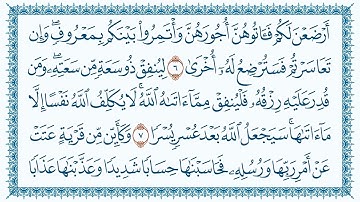 أَرْضَعْنَ لَكُمْ فَـَٔاتُوهُنَّ أُجُورَهُنَّ وَأْتَمِرُوا۟ بَيْنَكُم بِمَعْرُوفٍ ۖ وَإِن
تَعَاسَرْتُمْ فَسَتُرْضِعُ لَهُۥٓ أُخْرَىٰ ٦ لِيُنفِقْ ذُو سَعَةٍ مِّن سَعَتِهِۦ ۖ وَمَن
قُدِرَ عَلَيْهِ رِزْقُهُۥ فَلْيُنفِقْ مِمَّآ ءَاتَىٰهُ ٱللَّهُ ۚ لَا يُكَلِّفُ ٱللَّهُ نَفْسًا إِلَّا
مَآ ءَاتَىٰهَا ۚ سَيَجْعَلُ ٱللَّهُ بَعْدَ عُسْرٍ يُسْرًا ٧ وَكَأَيِّن مِّن قَرْيَةٍ عَتَتْ
عَنْ أَمْرِ رَبِّهَا وَرُسُلِهِۦ فَحَاسَبْنَٰهَا حِسَابًا شَدِيدًا وَعَذَّبْنَٰهَا عَذَابًا